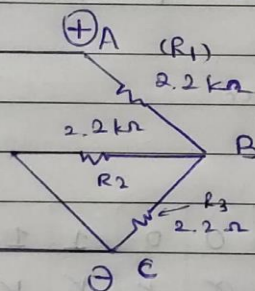 ⊕ A (R1)
2.2kΩ
2.2kΩ
B
R2
R3
2.2Ω
⊖ C